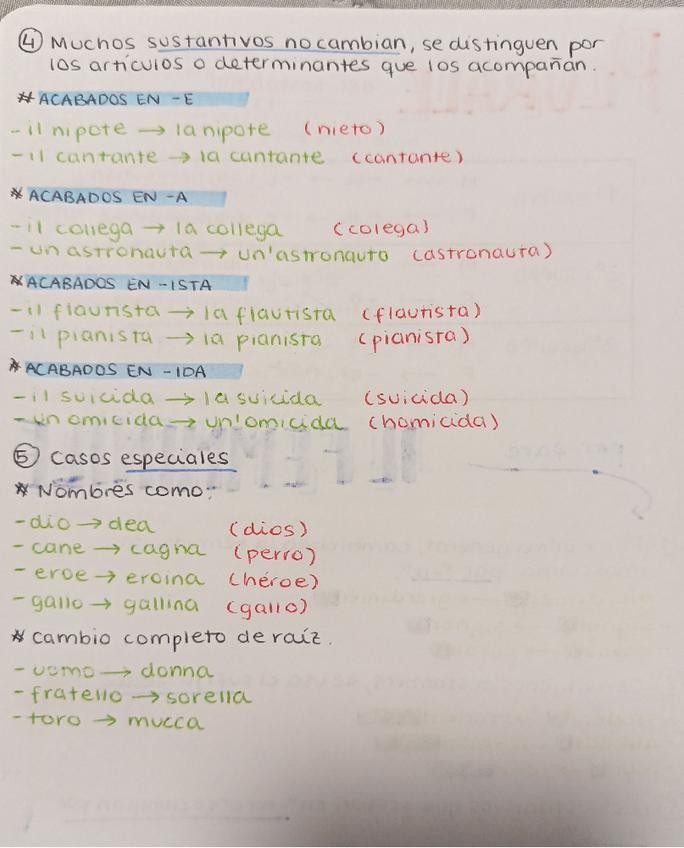 ④ Muchos sustantivos no cambian, se distinguen por
los artículos o determinantes que los acompañan.
* ACABADOS EN -E
- il nipote → la nipote (nieto)
- il cantante → la cantante (cantante)
* ACABADOS EN -A
- il collega → la collega (colega)
- un astronauta → un'astronauta (astronauta)
* ACABADOS EN -ISTA
- il flautista → la flautista (flautista)
- il pianista → la pianista (pianista)
* ACABADOS EN -IDA
- il suicida → la suicida (suicida)
- un omicida → un'omicida (homicida)
⑤ Casos especiales
* Nombres como:
- dio → dea (dios)
- cane → cagna (perro)
- eroe → eroina (héroe)
- gallo → gallina (gallo)
* Cambio completo de raíz.
- uomo → donna
- fratello → sorella
- toro → mucca